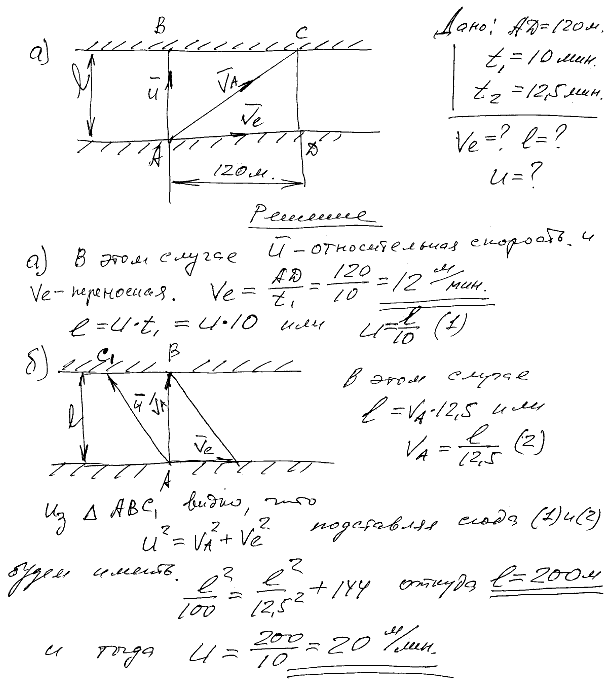 а)
B
C
l
ū
V̄A
V̄e
A
D
120 м.
Дано: AD=120м.
t₁=10 мин.
t₂=12,5 мин.
Ve=? l=?
u=?
Решение
а) В этом случае ū-относительная скорость и
Ve-переносная. Ve = AD/t₁ = 120/10 = 12 м/мин.
l = u·t₁ = u·10 или u = l/10 (1)
б)
C₁
B
l
ū
V̄A
V̄e
A
В этом случае
l = VA·12,5 или
VA = l/12,5 (2)
Из Δ ABC₁ видно, что
u² = VA² + Ve² подставляя сюда (1) и (2)
будем иметь. l²/100 = l²/12,5² + 144 откуда l=200м
и тогда u = 200/10 = 20 м/мин.